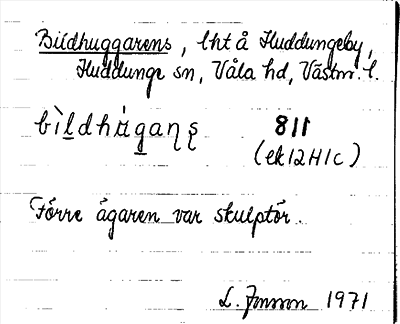 Bildhuggarens, lht å Huddungeby,
Huddunge sn, Våla hd, Västm. l.
bìldhùganʂ 811
(ek12H1c)
Förre ägaren var skulptör.
L. Jonsson 1971